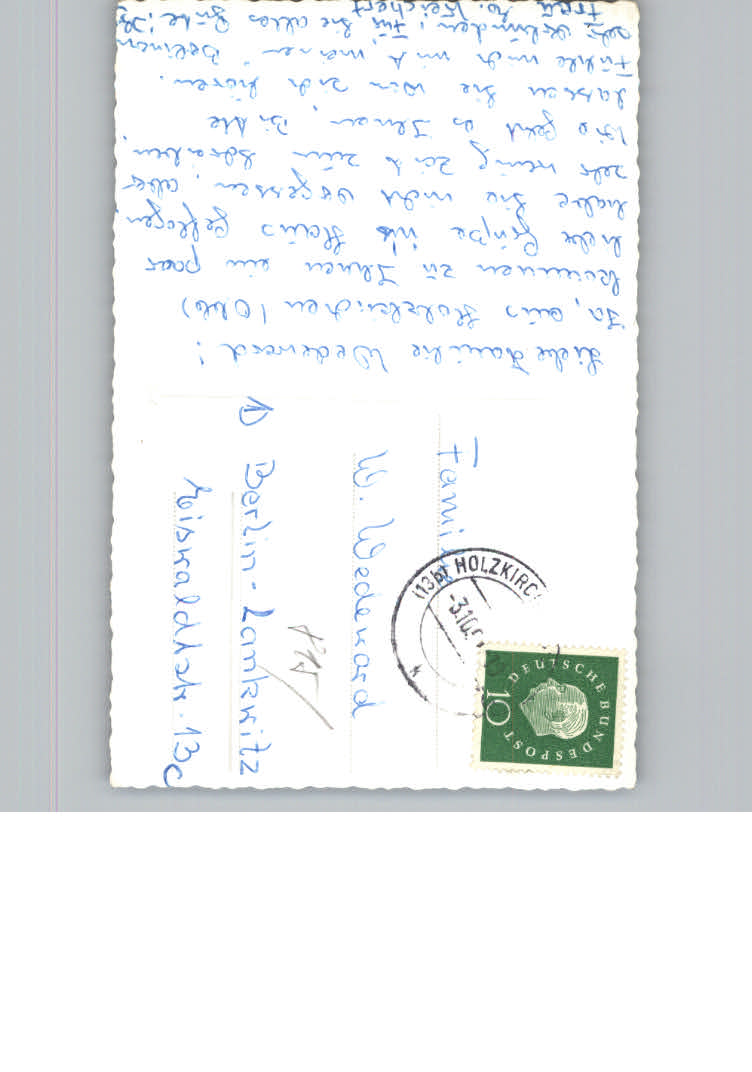 Liebe Familie Wedeward!
Ja, aus Holzkirchen (Obb)
kommen zu Ihnen ein paar
liebe Grüße ins Haus geflogen,
habe Sie nicht vergessen, aber
sehr wenig Zeit zum schreiben.
Wie geht es Ihnen, Bitte
lassen Sie von sich hören.
Fühle mich mit meinen Berlinern
sehr verbunden; Für Sie alles Gute! Ihr
Reichert
Familie
W. Wedeward
1) Berlin-Lankwitz
Eiswaldtstr. 13c
(13b) HOLZKIRCH
-3.10.
DEUTSCHE BUNDESPOST
10